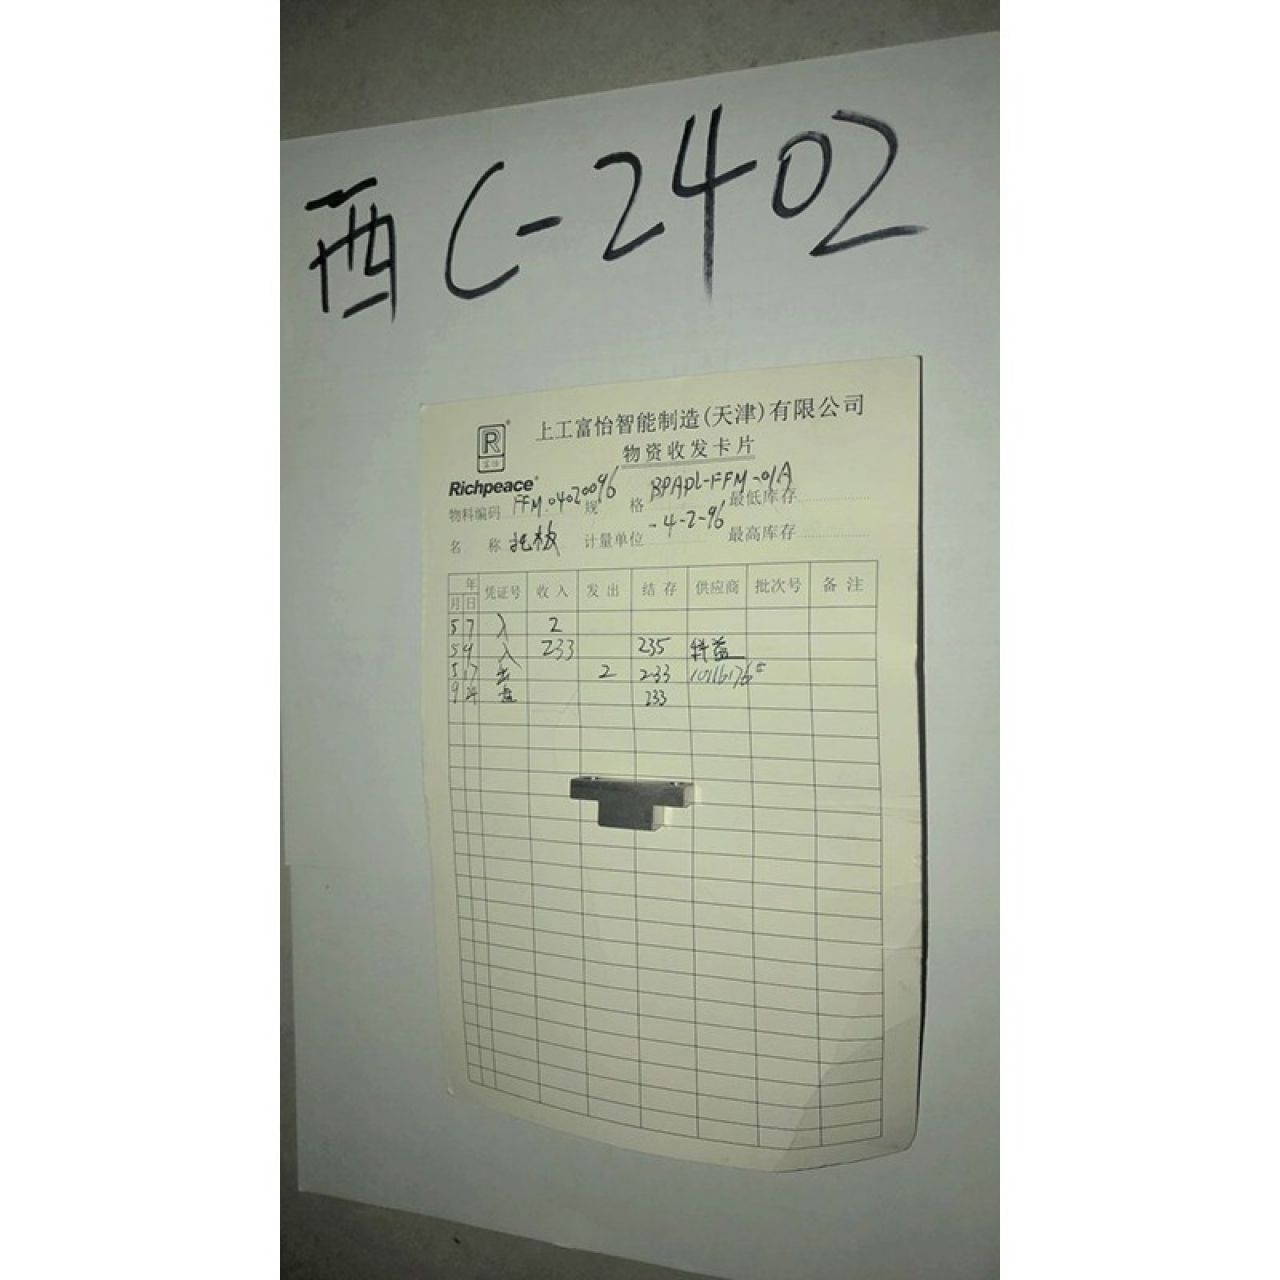 西C-2402
R®
富怡
Richpeace®
上工富怡智能制造(天津)有限公司
物资收发卡片
物料编码 FFM.04020096 规格 BPAPL-FFM-01A 最低库存
-4-2-96
名称 托板 计量单位 最高库存
年 月 日 凭证号 收入 发出 结存 供应商 批次号 备注
5 7 入 2
5 9 入 233 235 特益
5 17 出 2 233 10116176#
9 24 盘 233